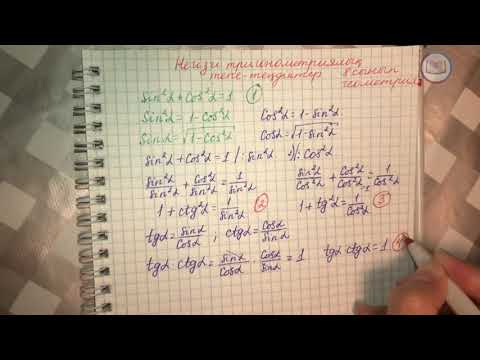 Негізгі тригонометриялық
тепе-теңдіктер 8 сынып
геометрия
sin²α+cos²α=1 ①
sin²α = 1-cos²α cos²α=1-sin²α
sinα=√1-cos²α cosα=√1-sin²α
sin²α+cos²α=1 /:sin²α :/: cos²α
sin²α/sin²α + cos²α/sin²α = 1/sin²α sin²α/cos²α + cos²α/cos²α = 1/cos²α
1+ctg²α=1/sin²α ② 1+tg²α=1/cos²α ③
tgα=sinα/cosα ; ctgα=cosα/sinα
tgα·ctgα=sinα/cosα · cosα/sinα = 1 tgα·ctgα=1